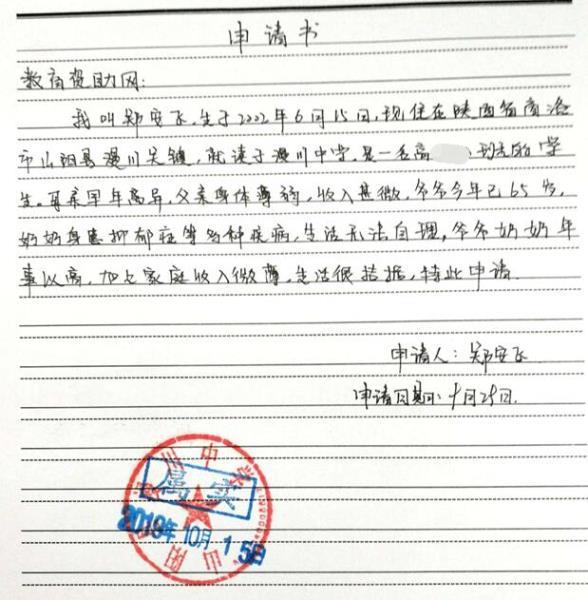 申请书
教育资助网:
我叫郑安飞,生于2002年6月15日,现住在陕西省商洛
市山阳县漫川关镇,就读于漫川中学,是一名高 的学
生。母亲早年离异,父亲身体薄弱,收入甚微,爷爷今年已65岁,
奶奶身患抑郁症等多种疾病,生活无法自理,爷爷奶奶年
事以高,加之家庭收入微薄,生活很拮据,特此申请.
申请人:郑安飞
申请日期: 月25日.
川中学
属实
2019年10月15日
山阳